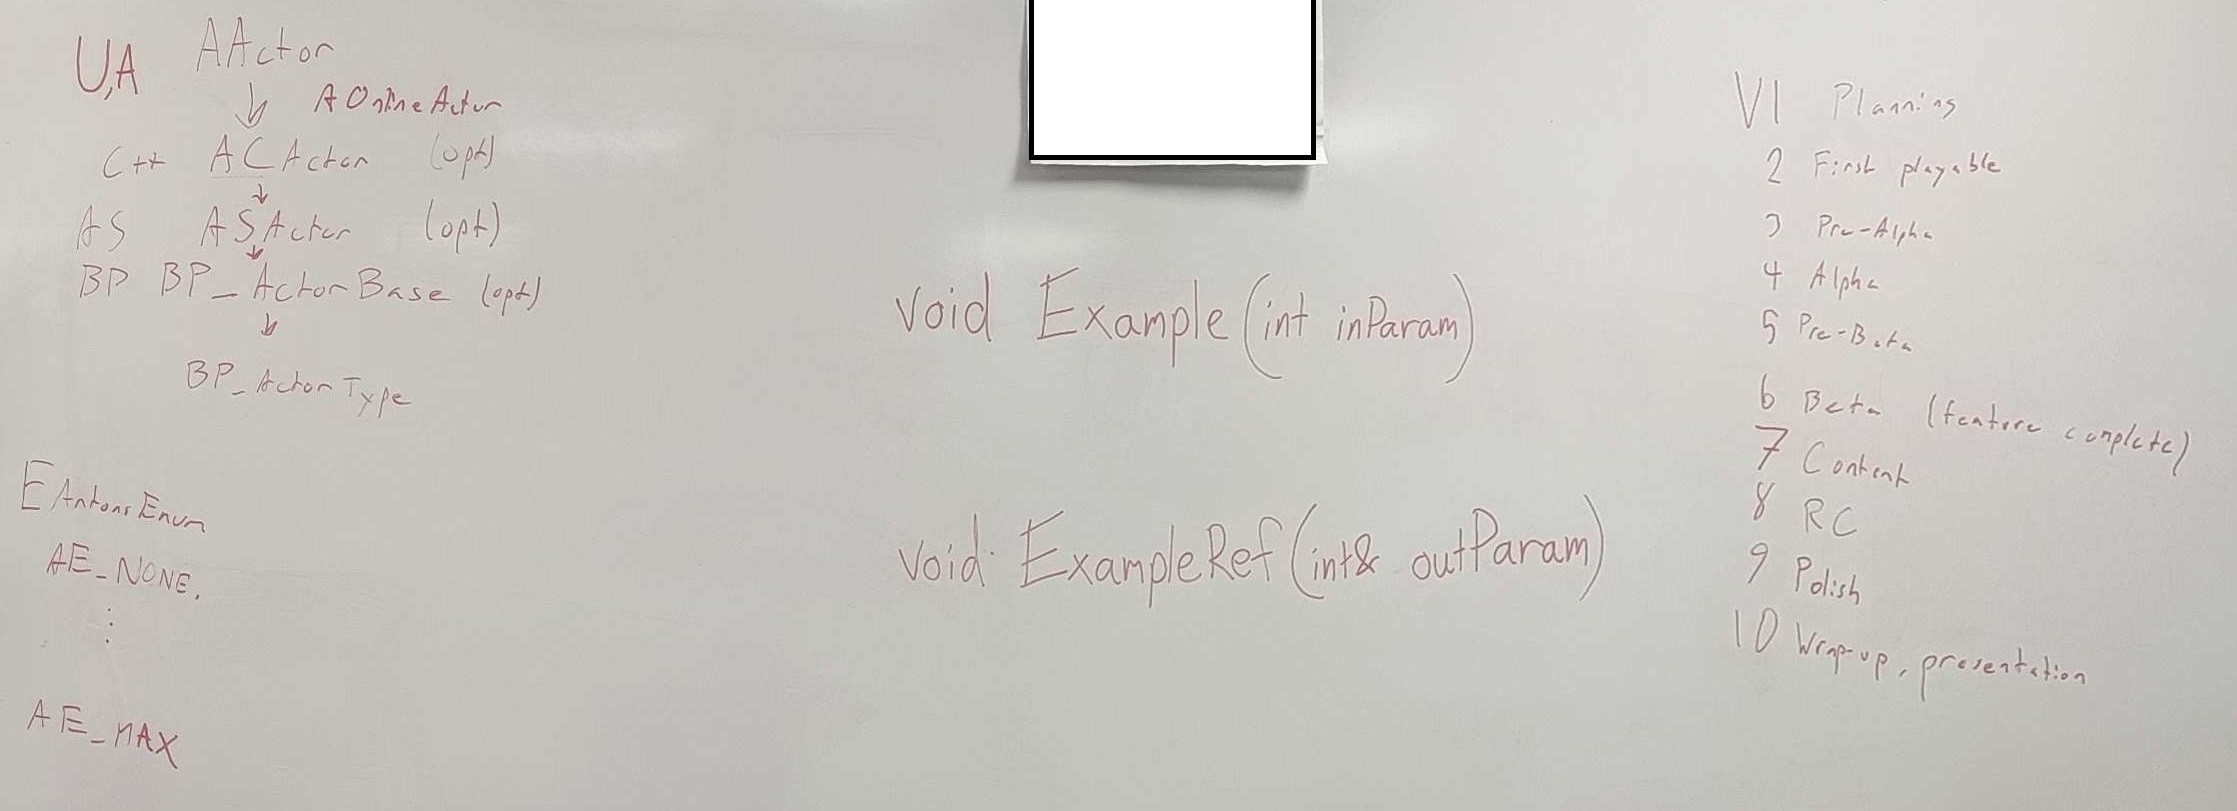 U,A AActor
AOnlineActor
C++ ACActor (opt)
AS ASActor (opt)
BP BP_ActorBase (opt)
BP_ActorType
EAntonsEnum
AE_NONE,
⋮
AE_MAX
void Example(int inParam)
void ExampleRef(int& outParam)
V1 Planning
2 First playable
3 Pre-Alpha
4 Alpha
5 Pre-Beta
6 Beta (feature complete)
7 Content
8 RC
9 Polish
10 Wrap-up, presentation